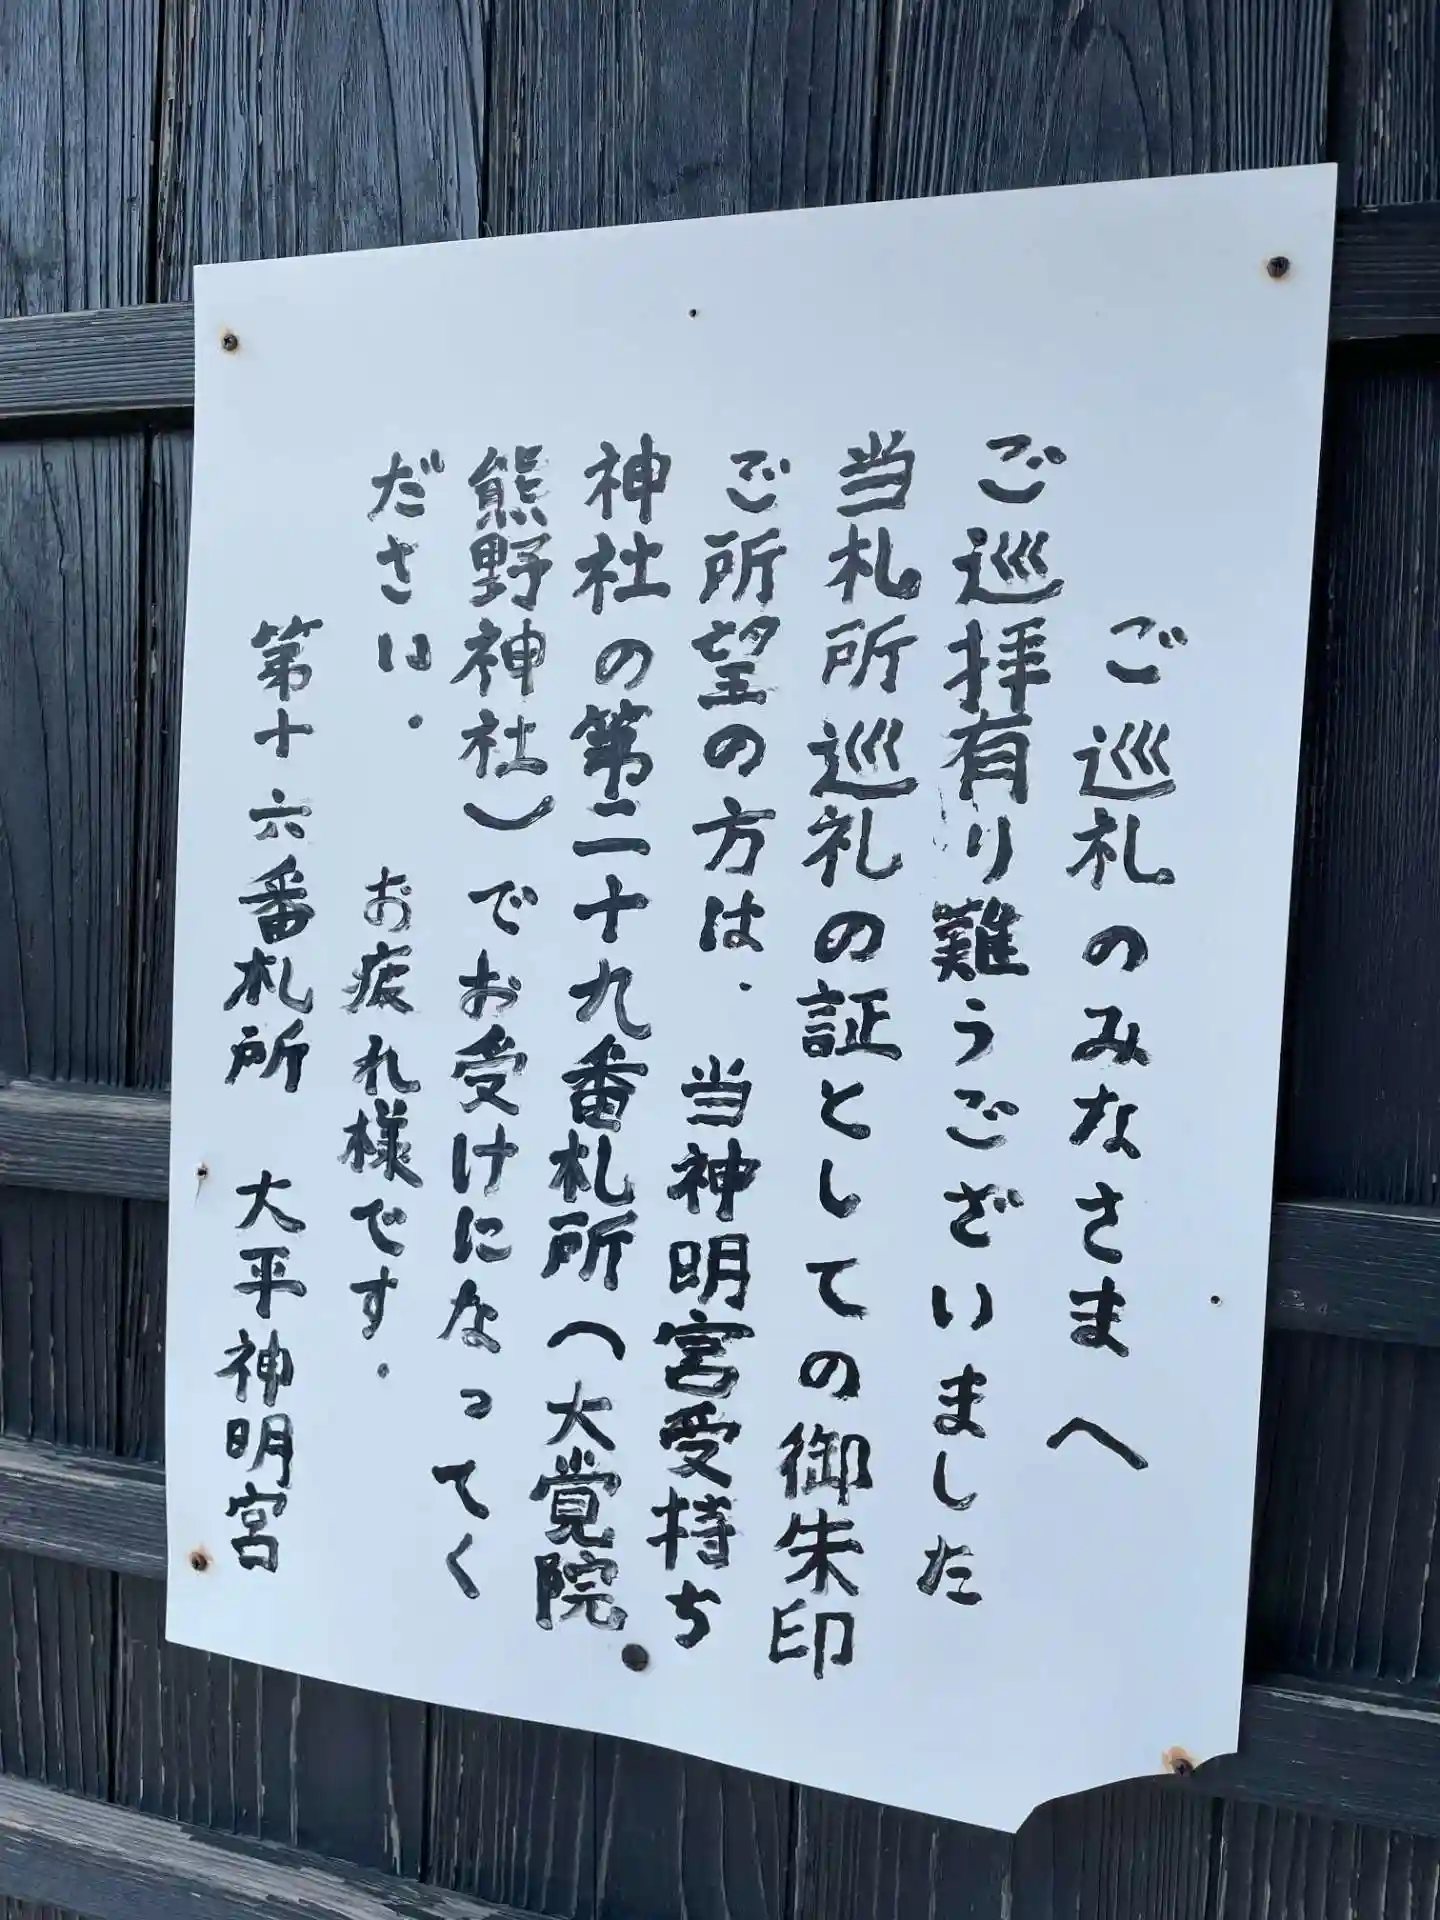 ご巡礼のみなさまへ
ご巡拝有り難うございました
当札所巡礼の証としての御朱印
ご所望の方は、当神明宮受持ち
神社の第二十九番札所へ大覚院
熊野神社)でお受けになってく
ださい。お疲れ様です。
第十六番札所 大平神明宮